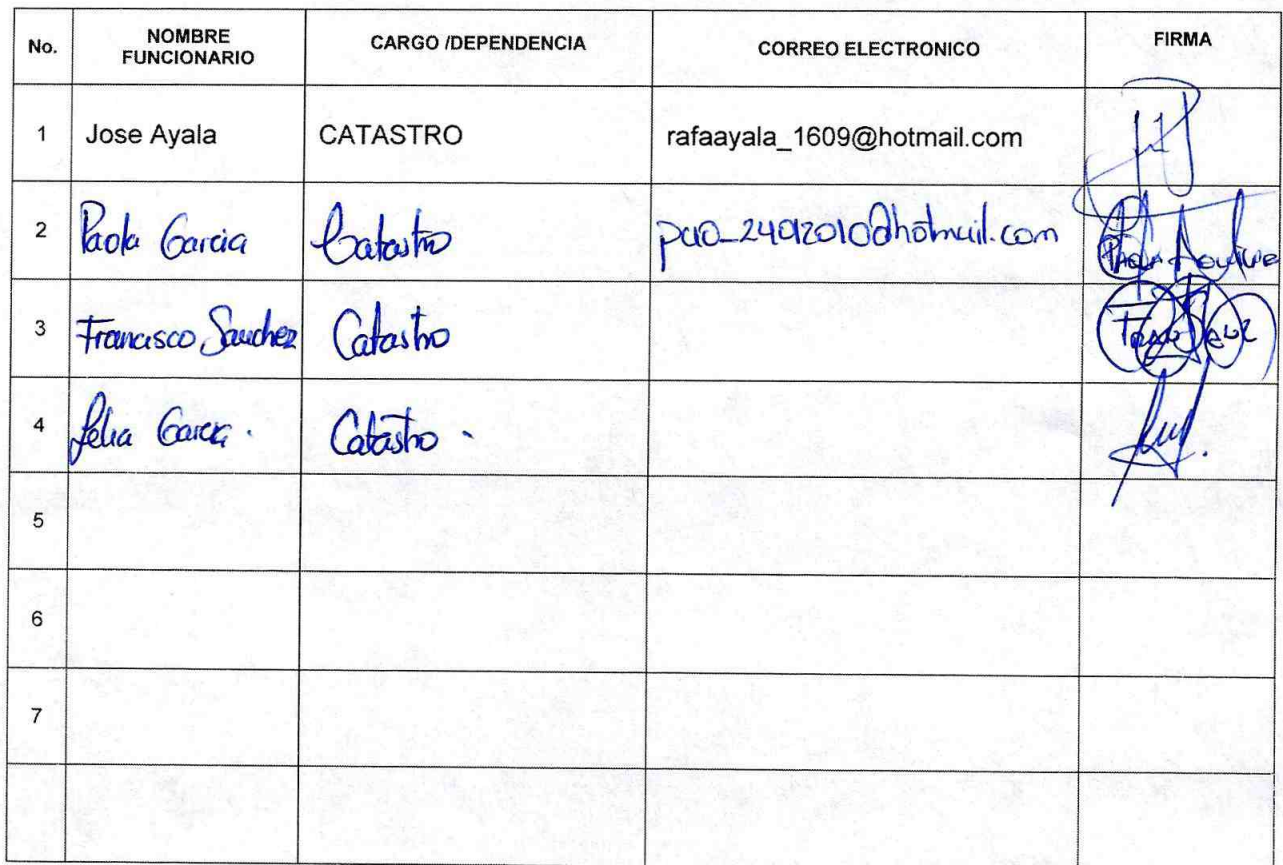 No. NOMBRE FUNCIONARIO CARGO /DEPENDENCIA CORREO ELECTRONICO FIRMA
1 Jose Ayala CATASTRO rafaayala_1609@hotmail.com
2 Paola Garcia Catastro pao_24012010@hotmail.com
3 Francisco Sanchez Catastro
4 Garcia. Catastro.
5
6
7